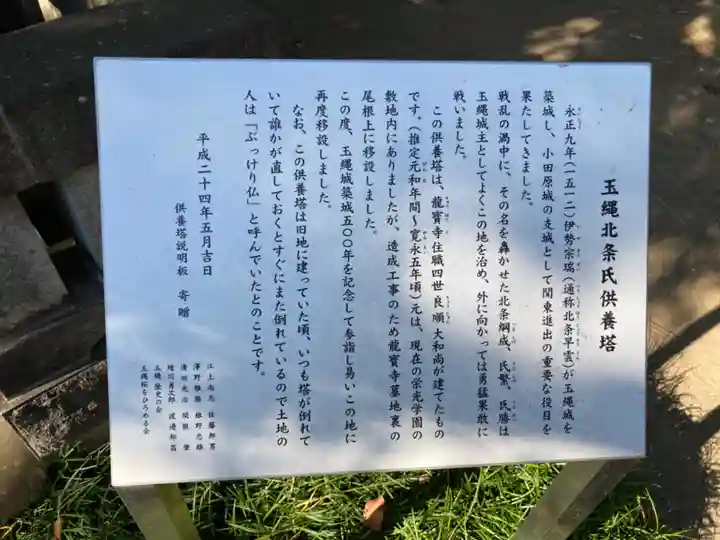 玉縄北条氏供養塔
永正九年(一五一二)伊勢宗瑞(通称北条早雲)が玉縄城を
築城し、小田原城の支城として関東進出の重要な役目を
果たしてきました。
戦乱の渦中に、その名を轟かせた北条綱成、氏繁、氏勝は
玉縄城主としてよくこの地を治め、外に向かっては勇猛果敢に
戦いました。
この供養塔は、龍寶寺住職四世良順大和尚が建てたもの
です。(推定元和年間～寛永五年頃)元は、現在の栄光学園の
敷地内にありましたが、造成工事のため龍寶寺墓地裏の
尾根上に移設しました。
この度、玉縄城築城五〇〇年を記念して参詣し易いこの地に
再度移設しました。
なお、この供養塔は旧地に建っていた頃、いつも塔が倒れて
いて誰かが直しておくとすぐにまた倒れているので土地の
人は「ぶっけり仏」と呼んでいたとのことです。
平成二十四年五月吉日
供養塔説明板 寄贈
佐藤邦男
澤野
清田光治 関根 肇
渡邊邦昌
玉縄歴史の会
玉縄桜をひろめる会